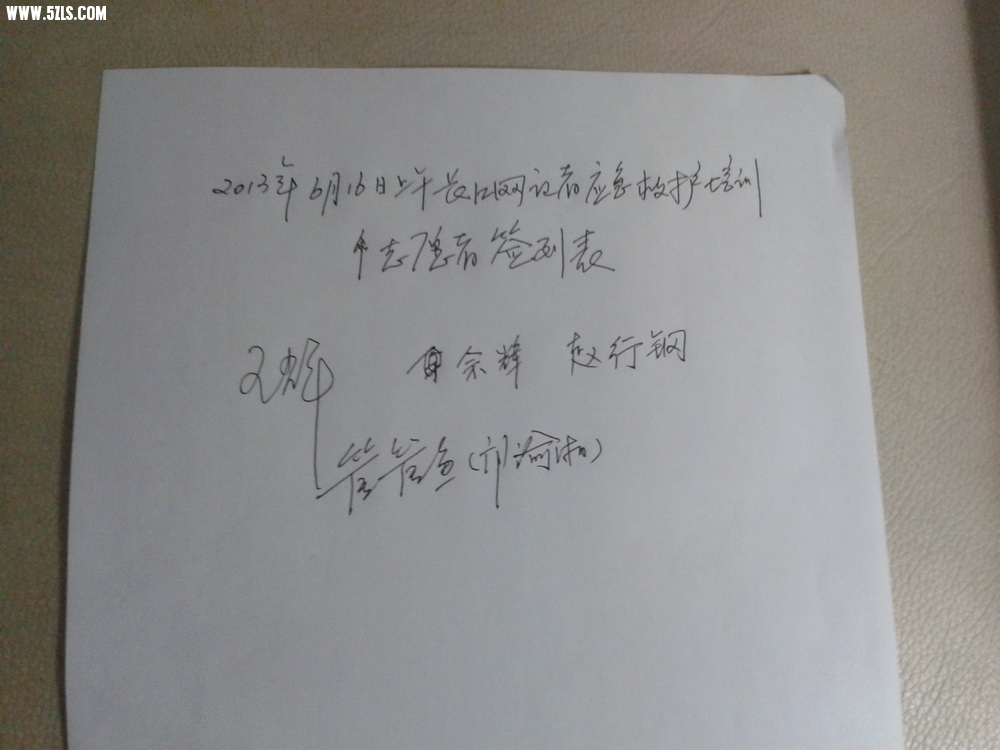 WWW.5ZLS.COM
2013年6月16日上午长江网记者应急救护培训
志愿者签到表
王辉 余辉 赵行钢
管管鱼(刘渝湘)